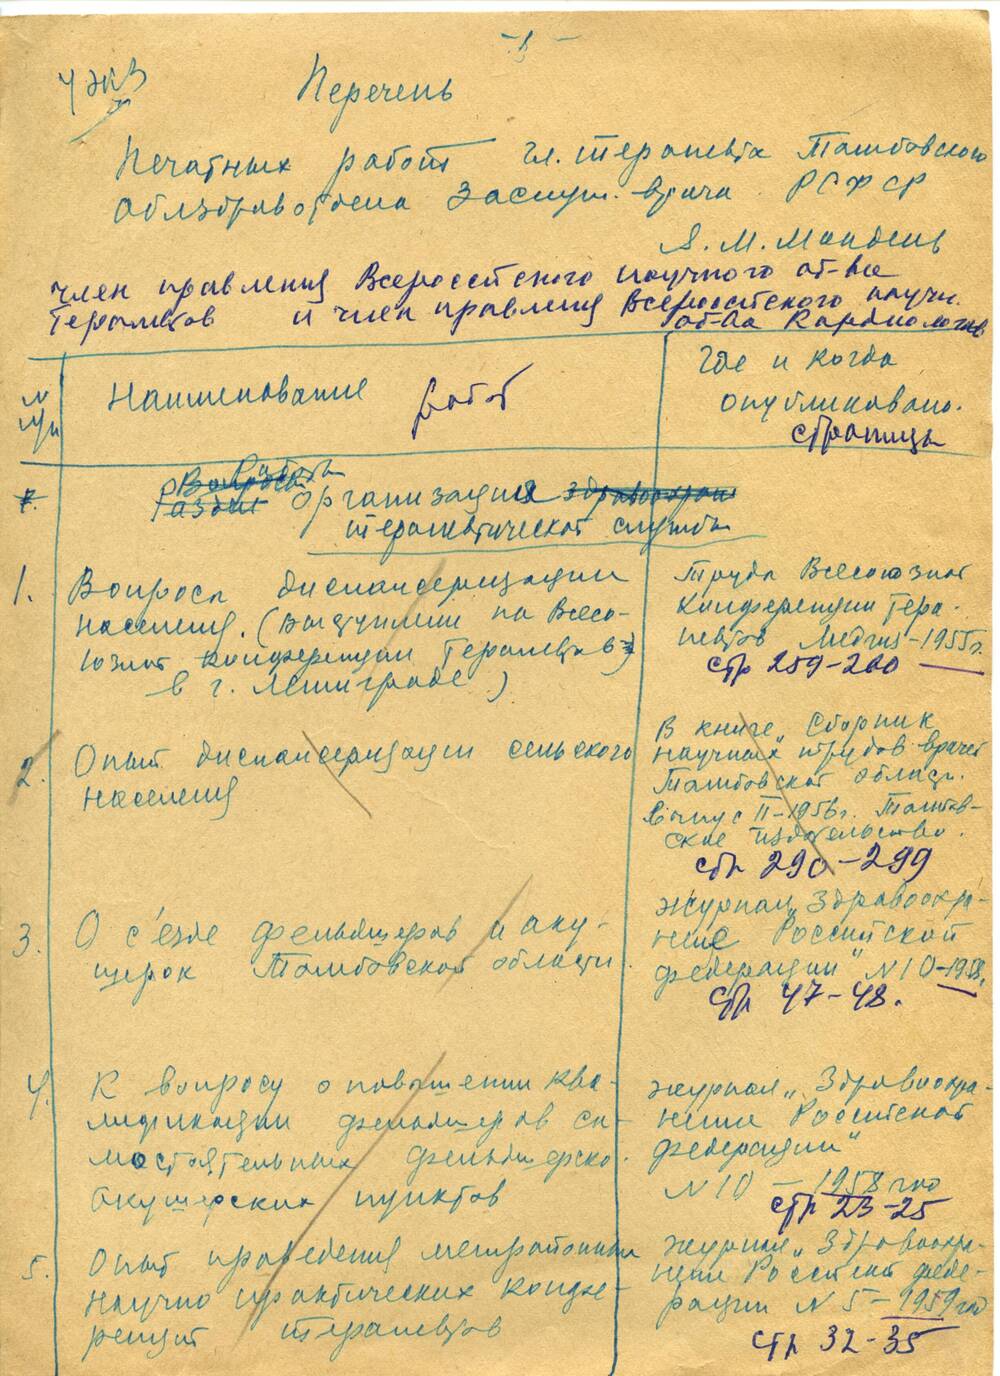 -1-
4 экз
Перечень
Печатных работ гл. терапевта Тамбовского
Облздравотдела Заслуж. врача РСФСР
А. М. Мандель
член правления Всероссийского научного об-ва
Терапевтов и член правления Всероссийского научн.
об-ва Кардиологов
N п/п
Наименование работ
Где и когда
опубликовано.
страницы
Работы
Вопросы
Раздел Организация здравоохран
терапевтической службы
1. Вопросы диспансеризации
населения. (выступление на Всесо-
юзной конференции Терапевтов
в г. Ленинграде)
Труды Всесоюзной
Конференции Тера-
певтов Медгиз-1955г.
стр 259-260
2. Опыт диспансеризации сельского
населения
В книге „Сборник
научных трудов врачей
Тамбовской области.
Выпус II-1956г. Тамбов-
ское издательство.
стр 290-299
3. О с'езде фельдшеров и аку-
шерок Тамбовской области.
журнал „Здравоохра-
нение Российской
федерации" N 10-1958.
стр 47-48.
4. К вопросу о повышении ква-
лификации фельдшеров са-
мостоятельных фельдшерско.
акушерских пунктов
журнал „Здравоохра-
нение Российской
федерации"
N 10 - 1958 год
стр 23-25
5. Опыт проведения межрайонных
научно практических конфе-
ренций терапевтов
журнал „Здравоохра-
нение Российской феде-
рации N 5-1959 год
стр 32-35